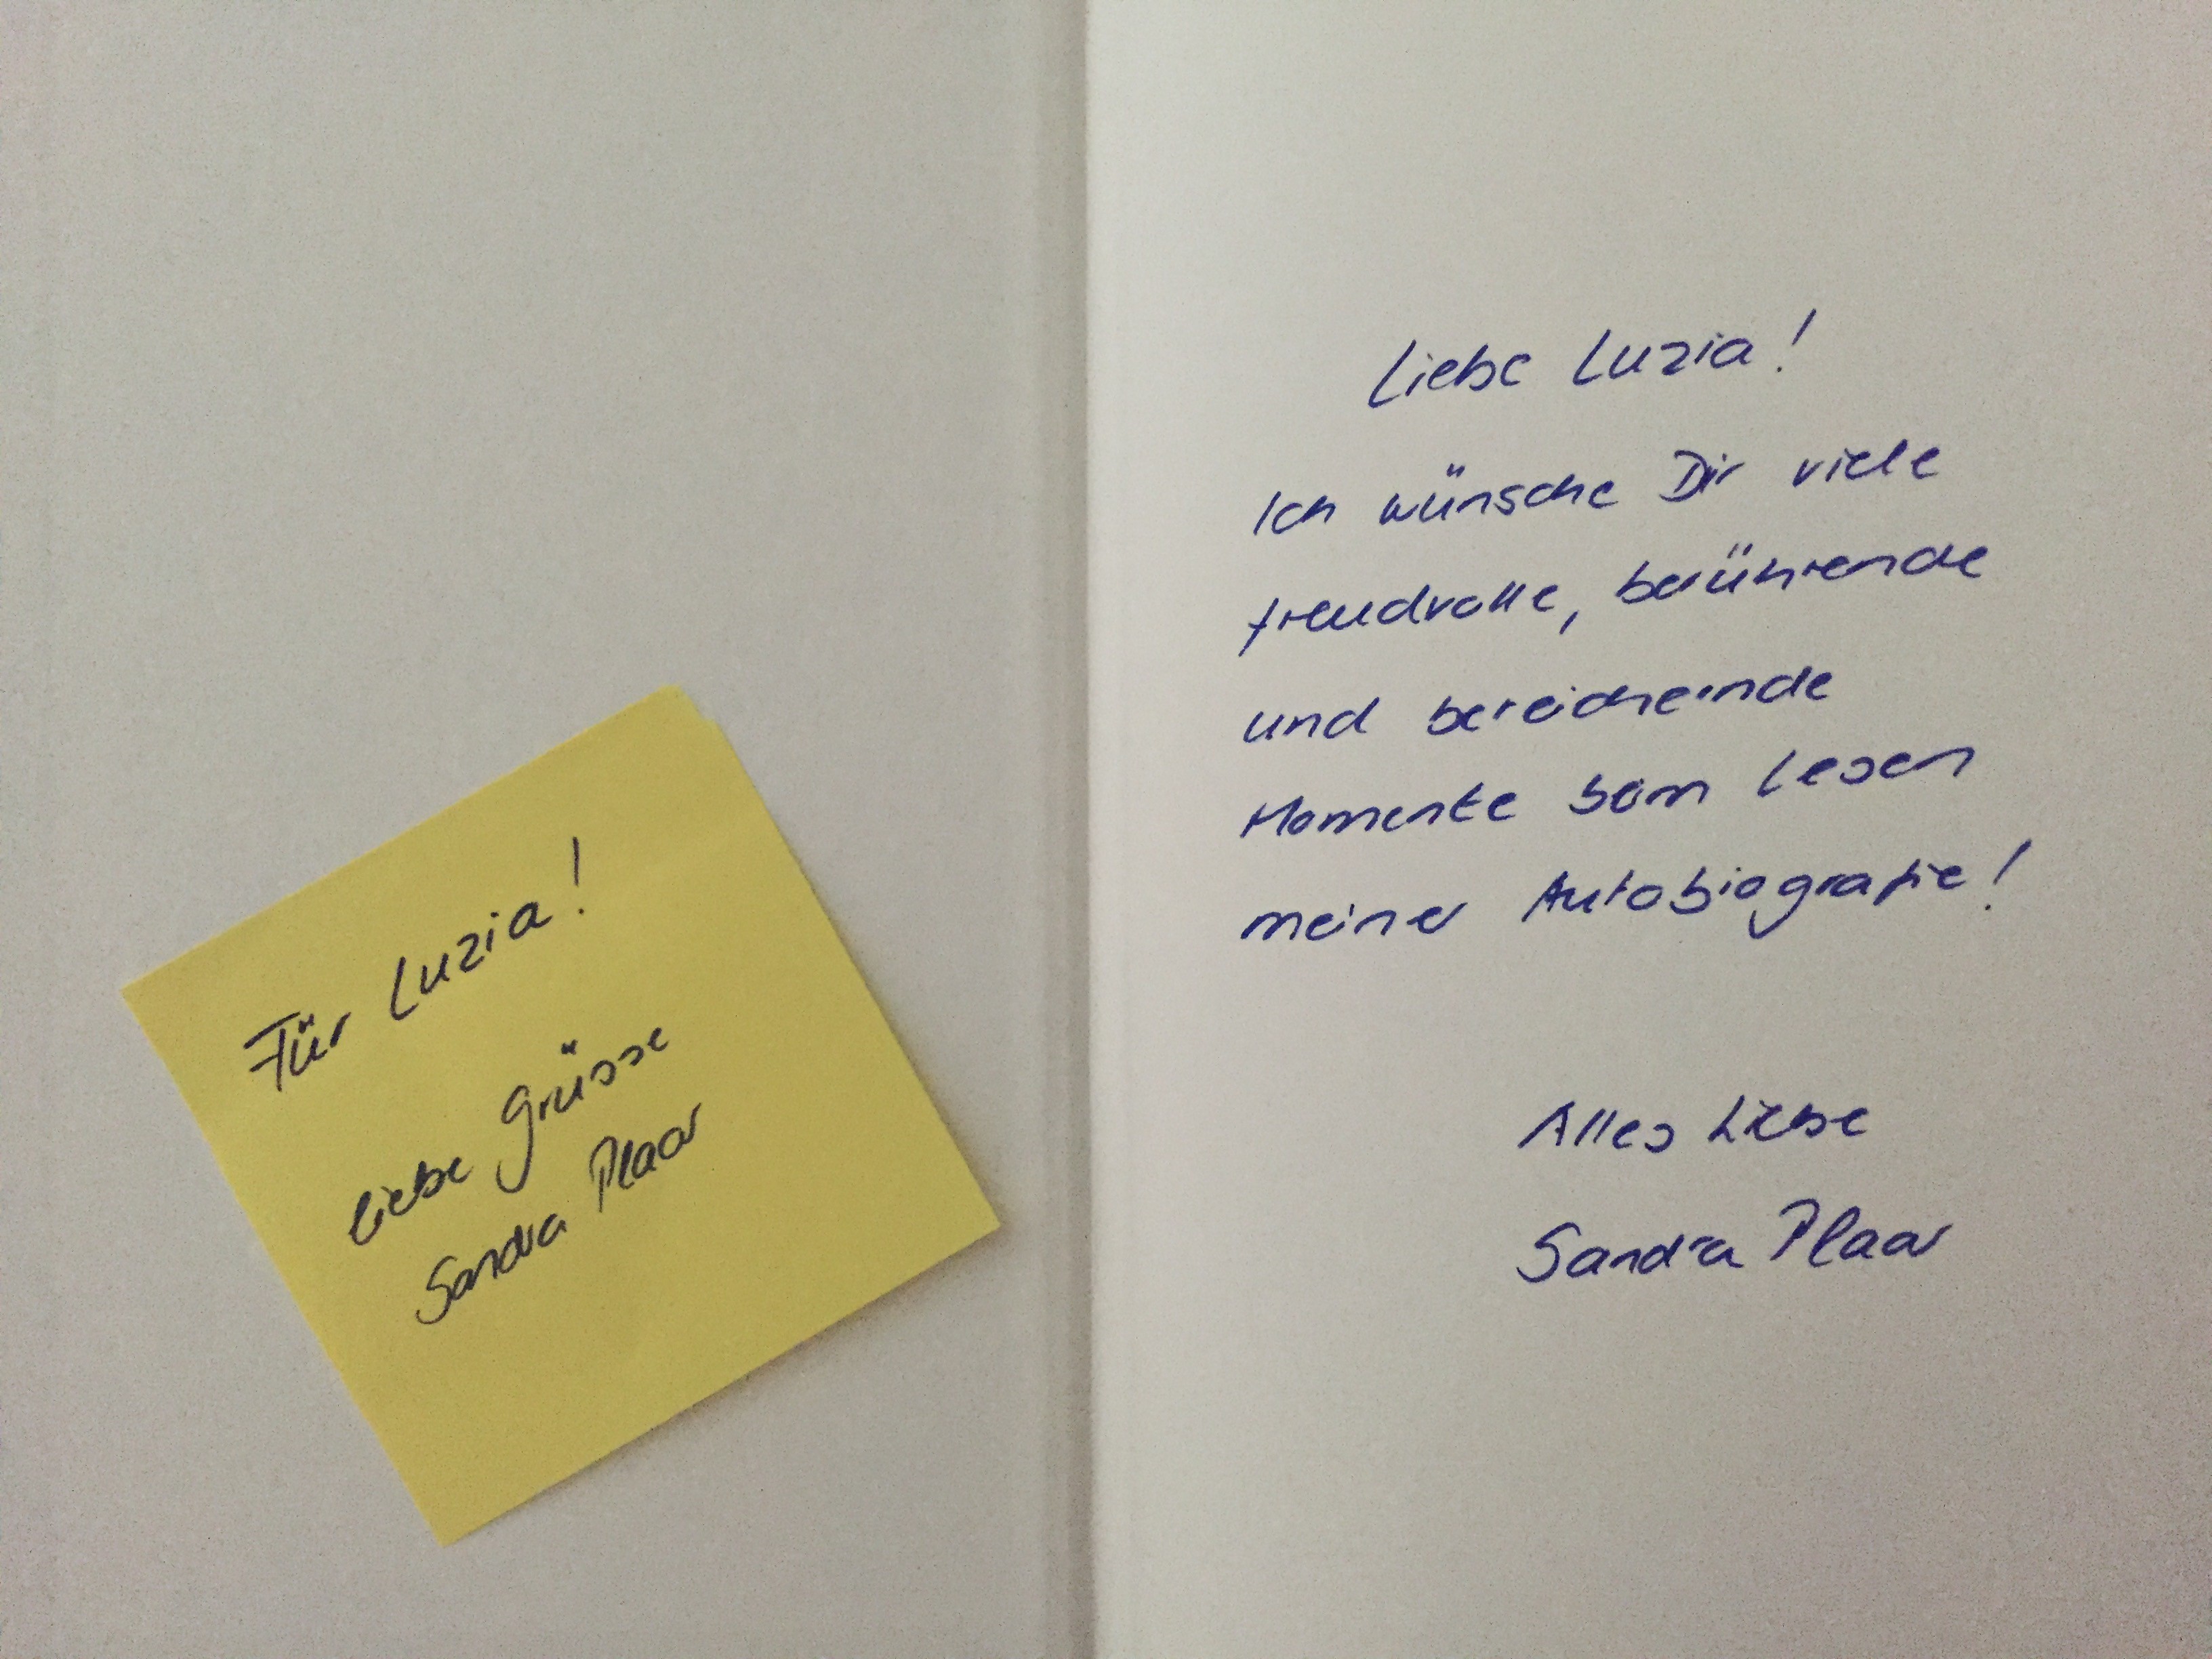 Für Luzia!
liebe Grüsse
Sandra Plaar
Liebe Luzia!
Ich wünsche Dir viele
freudvolle, berührende
und bereichernde
Momente beim Lesen
meiner Autobiografie!
Alles Liebe
Sandra Plaar